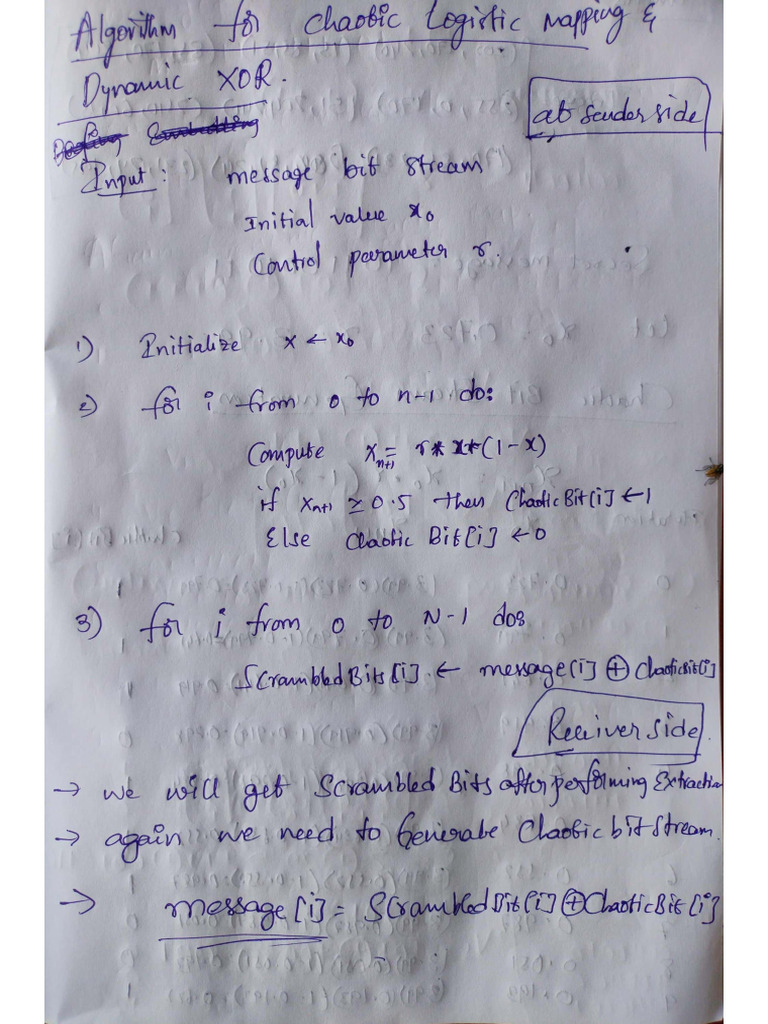 Algorithm for Chaotic Logistic Mapping &
Dynamic XOR.
at sender side
Input: message bit stream
Initial value x₀
Control parameter r.
1) Initialize x ← x₀
2) for i from 0 to n-1 do:
Compute xₙ₊₁ = r * x * (1-x)
if xₙ₊₁ ≥ 0.5 then ChaoticBit[i] ← 1
Else Chaotic Bit[i] ← 0
3) for i from 0 to N-1 do:
ScrambledBits[i] ← message[i] ⊕ ChaoticBit[i]
Receiver side.
→ we will get Scrambled Bits after performing Extraction
→ again we need to Generate Chaotic bit stream.
→ message[i] = ScrambledBit[i] ⊕ ChaoticBit[i]